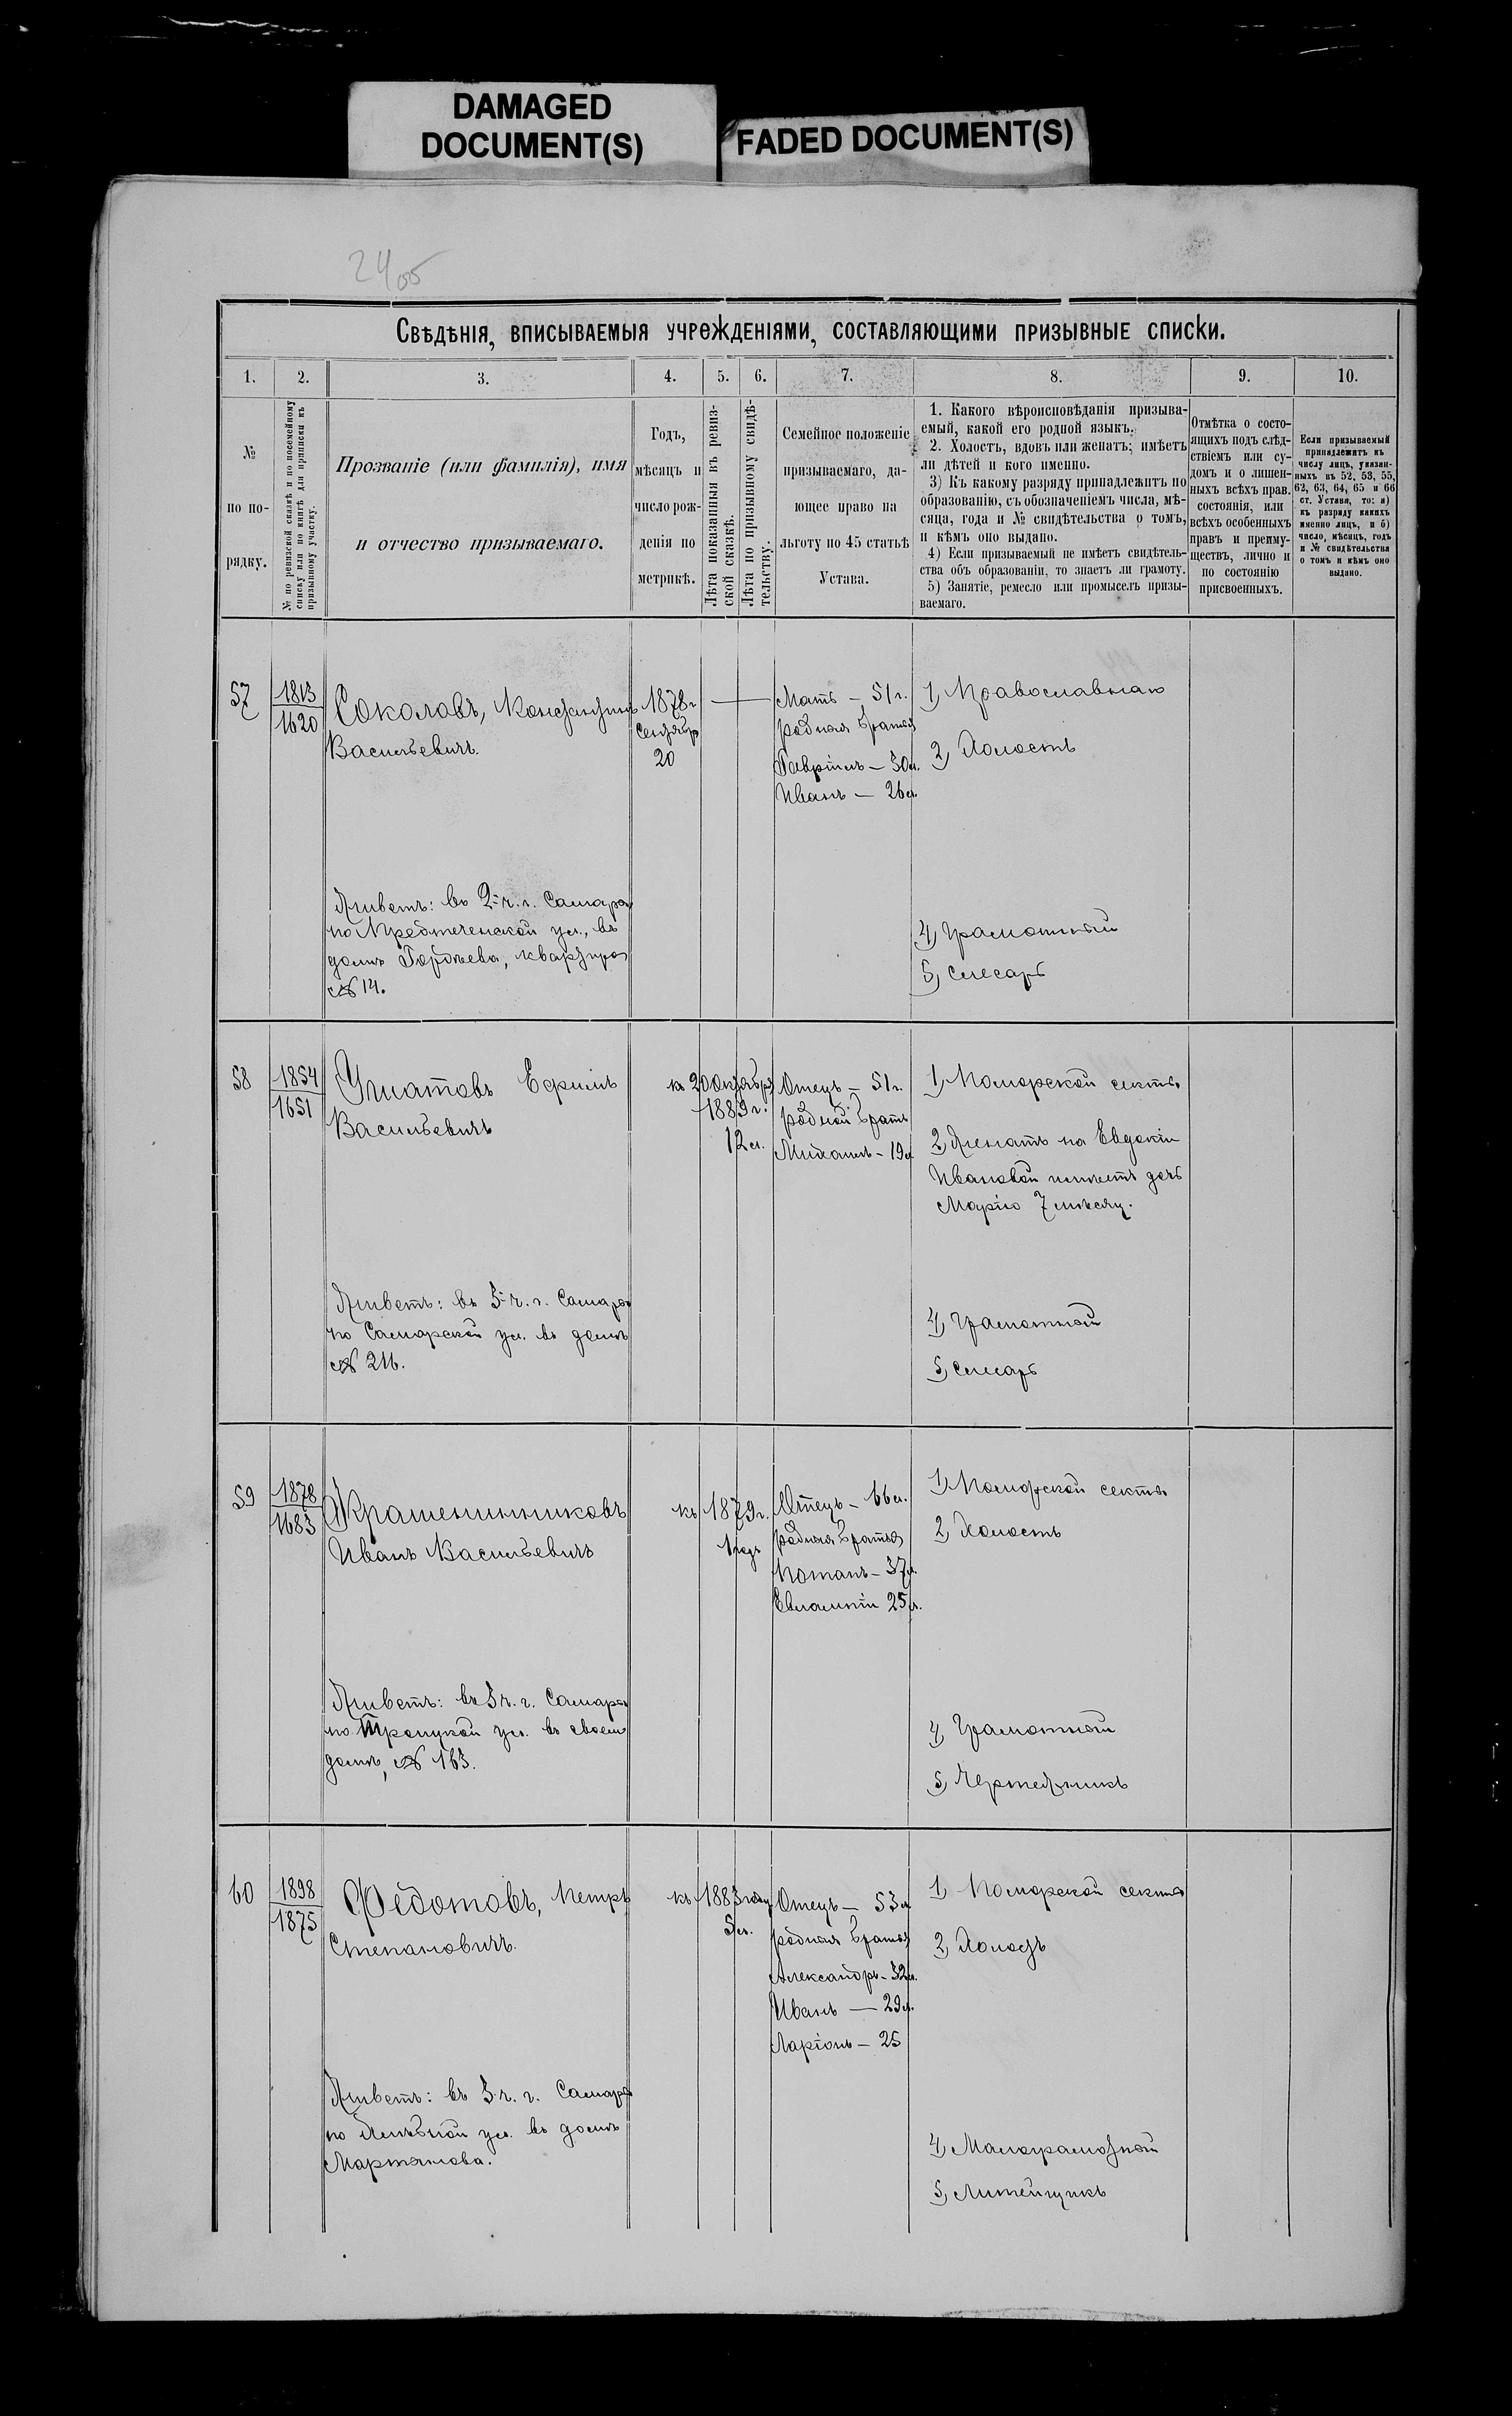 DAMAGED
DOCUMENT(S)
FADED DOCUMENT(S)
2405
Свѣдѣнія, вписываемыя учрежденіями, составляющими призывные списки.
1. 2. 3. 4. 5. 6. 7. 8. 9. 10.
№
по по-
рядку.
№ по ревизской сказкѣ и по посемейному
списку или по книгѣ для приписки къ
призывному участку.
Прозваніе (или фамилія), имя
и отчество призываемаго.
Годъ,
мѣсяцъ и
число рож-
денія по
метрикѣ.
Лѣта показанныя въ ревиз-
ской сказкѣ.
Лѣта по призывному свидѣ-
тельству.
Семейное положеніе
призываемаго, да-
ющее право на
льготу по 45 статьѣ
Устава.
1. Какого вѣроисповѣданія призыва-
емый, какой его родной языкъ.
2. Холостъ, вдовъ или женатъ; имѣетъ
ли дѣтей и кого именно.
3) Къ какому разряду принадлежитъ по
образованію, съ обозначеніемъ числа, мѣ-
сяца, года и № свидѣтельства о томъ,
и кѣмъ оно выдано.
4) Если призываемый не имѣетъ свидѣтель-
ства объ образованіи, то знаетъ ли грамоту.
5) Занятіе, ремесло или промыселъ призы-
ваемаго.
Отмѣтка о состо-
ящихъ подъ слѣд-
ствіемъ или су-
домъ и о лишен-
ныхъ всѣхъ прав.
состоянія, или
всѣхъ особенныхъ
правъ и преиму-
ществъ, лично и
по состоянію
присвоенныхъ.
Если призываемый
принадлежитъ къ
числу лицъ, указан-
ныхъ въ 52, 53, 55,
62, 63, 64, 65 и 66
ст. Устава, то: а)
къ разряду какихъ
именно лицъ, и б)
число, мѣсяцъ, годъ
и № свидѣтельства
о томъ и кѣмъ оно
выдано.
57
1813
1620
Соколовъ, Константинъ
Васильевичъ.
Живетъ: въ 2-ч. г. Самары
по Предтеченской ул., въ
домѣ Гордѣева, квартира
№ 14.
1878 г
Сентябр
20
Мать — 51 г.
родная братья
Гавріилъ — 30 л.
Иванъ — 26 л.
1, Православнаго
2, Холостъ
4, Грамотный
5, Слесарь
58
1854
1651
Ефимъ
Васильевичъ
Живетъ: въ 3-ч. г. Самары
по Самарской ул. въ домѣ
№ 216.
къ 20 Октября
1889 г.
12 л.
Отецъ — 51 г.
родной братъ
Михаилъ — 19 л
1, Поморской секты
2, Женатъ на Евдокіи
Ивановой имѣетъ дочь
Марію 7 мѣсяц.
4, Грамотный
5, Слесарь
59
1878
1683
Крашенинниковъ
Иванъ Васильевичъ
Живетъ: въ 3 ч. г. Самары
по Троицкой ул. въ своемъ
домѣ, № 163.
къ 1879 г.
1 годъ
Отецъ — 66 л.
родная братья
Романъ — 37 л.
Евлампій 25 л.
1, Поморской секты
2, Холостъ
4, Грамотный
5, Чертежникъ
60
1898
1875
Федотовъ, Петръ
Степановичъ.
Живетъ: въ 3-ч. г. Самары
по Хлѣбной ул. въ домѣ
Мартянова.
къ 1883 году
5 л.
Отецъ — 53 л
родная братья
Александръ — 32 л.
Иванъ — 29 л.
Ларіонъ — 25
1, Поморской секты
2, Холостъ
4, Малограмотный
5, Литейщикъ